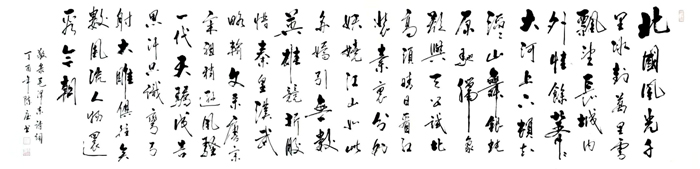 北國風光千
里冰封萬里雪
飄望長城內
外惟餘莽莽
大河上下頓失
滔滔山舞銀蛇
原馳蠟象
欲與天公試比
高須晴日看紅
裝素裹分外
妖嬈江山如此
多嬌引無數
英雄競折腰
惜秦皇漢武
略輸文采唐宗
宋祖稍遜風騷
一代天驕成吉
思汗只識彎弓
射大雕俱往矣
數風流人物還
看今朝
毛澤東詩詞
丁酉年 書